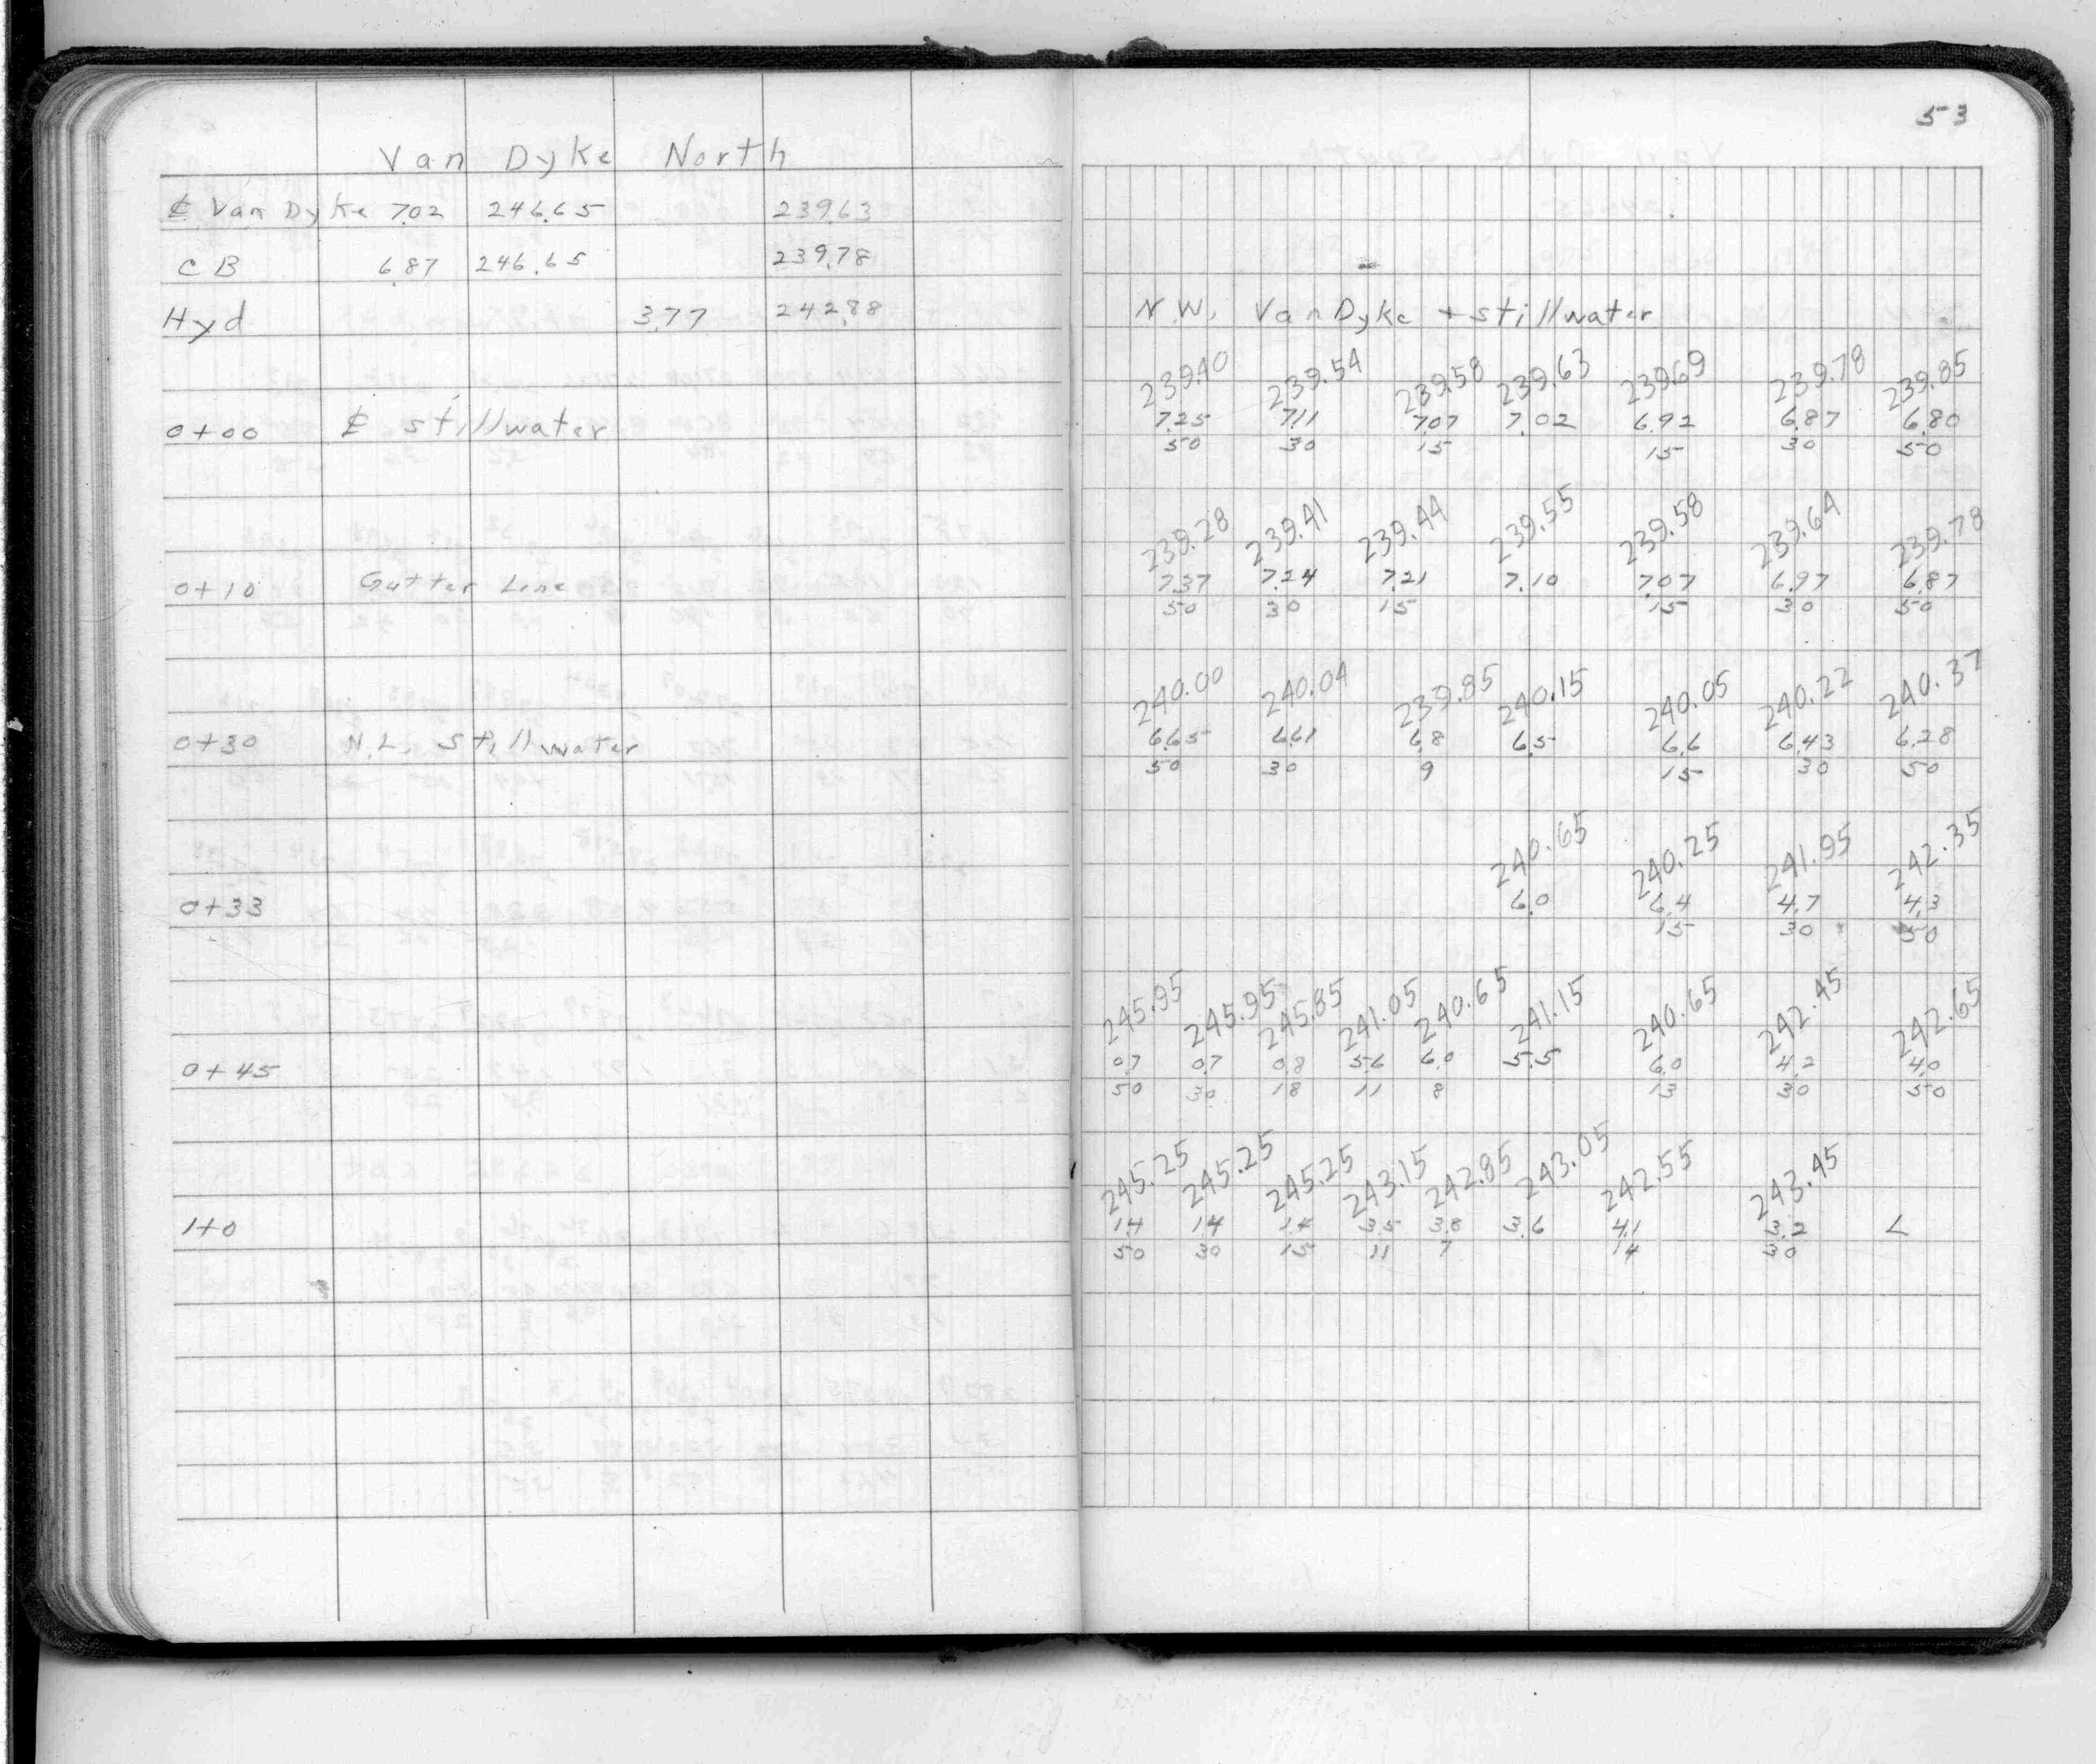 53
Van Dyke North
₵ Van Dyke 7.02 246.65 239.63
CB 6.87 246.65 239.78
Hyd 3.77 242.88 N.W. Van Dyke + stillwater
239.40 239.54 239.58 239.63 239.69 239.78 239.85
0+00 ₵ stillwater 7.25 7.11 7.07 7.02 6.92 6.87 6.80
50 30 15 15 30 50
239.28 239.41 239.44 239.55 239.58 239.64 239.78
0+10 Gutter Line 7.37 7.24 7.21 7.10 7.07 6.97 6.87
50 30 15 15 30 50
240.00 240.04 239.85 240.15 240.05 240.22 240.37
0+30 N.L. Stillwater 6.65 6.61 6.8 6.5 6.6 6.43 6.28
50 30 9 15 30 50
240.65 240.25 241.95 242.35
0+33 6.0 6.4 4.7 4.3
15 30 50
245.95 245.95 245.85 241.05 240.65 241.15 240.65 242.45 242.65
0+45 0.7 0.7 0.8 5.6 6.0 5.5 6.0 4.2 4.0
50 30 18 11 8 13 30 50
245.25 245.25 245.25 243.15 242.85 243.05 242.55 243.45
1+0 1.4 1.4 1.4 3.5 3.8 3.6 4.1 3.2 L
50 30 15 11 7 14 30